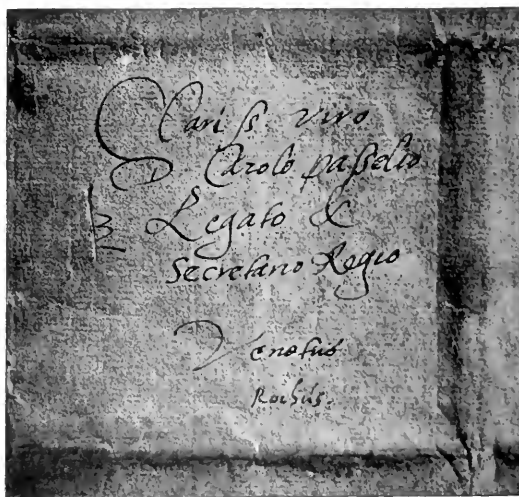 Clariss. viro
D Carolo passelio
Legato &
Secretario Regio
Venetus
Rochus.